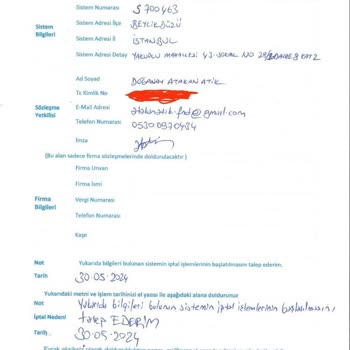 Sistem Numarası S700463
Sistem Adresi İlçe BEYLİKDÜZÜ
Sistem Bilgileri
Sistem Adresi İl İSTANBUL
Sistem Adresi Detay YAKUPLU MAHALLESİ 43. SOKAK NO 28/1 DAİRE 8 KAT 2
Ad Soyad DOĞANAY ATAKAN ATİK
Tc Kimlik No
Sözleşme Yetkilisi
E-Mail Adresi @gmail.com
Telefon Numarası 05300970434
İmza
(Bu alan sadece firma sözleşmelerinde doldurulacaktır )
Firma Unvan
Firma İsmi
Firma Bilgileri
Vergi Numarası
Telefon Numarası
Kaşe
Not Yukarıda bilgileri bulunan sistemin iptal işlemlerinin başlatılmasını talep ederim.
Tarih 30.05.2024
Yukarıdaki metni ve işlem tarihinizi el yazısı ile aşağıdaki alana doldurunuz
Not Yukarıda bilgileri bulunan sistemin iptal işlemlerinin başlatılmasını,
İptal Nedeni talep EDERİM
Tarih 30.05.2024